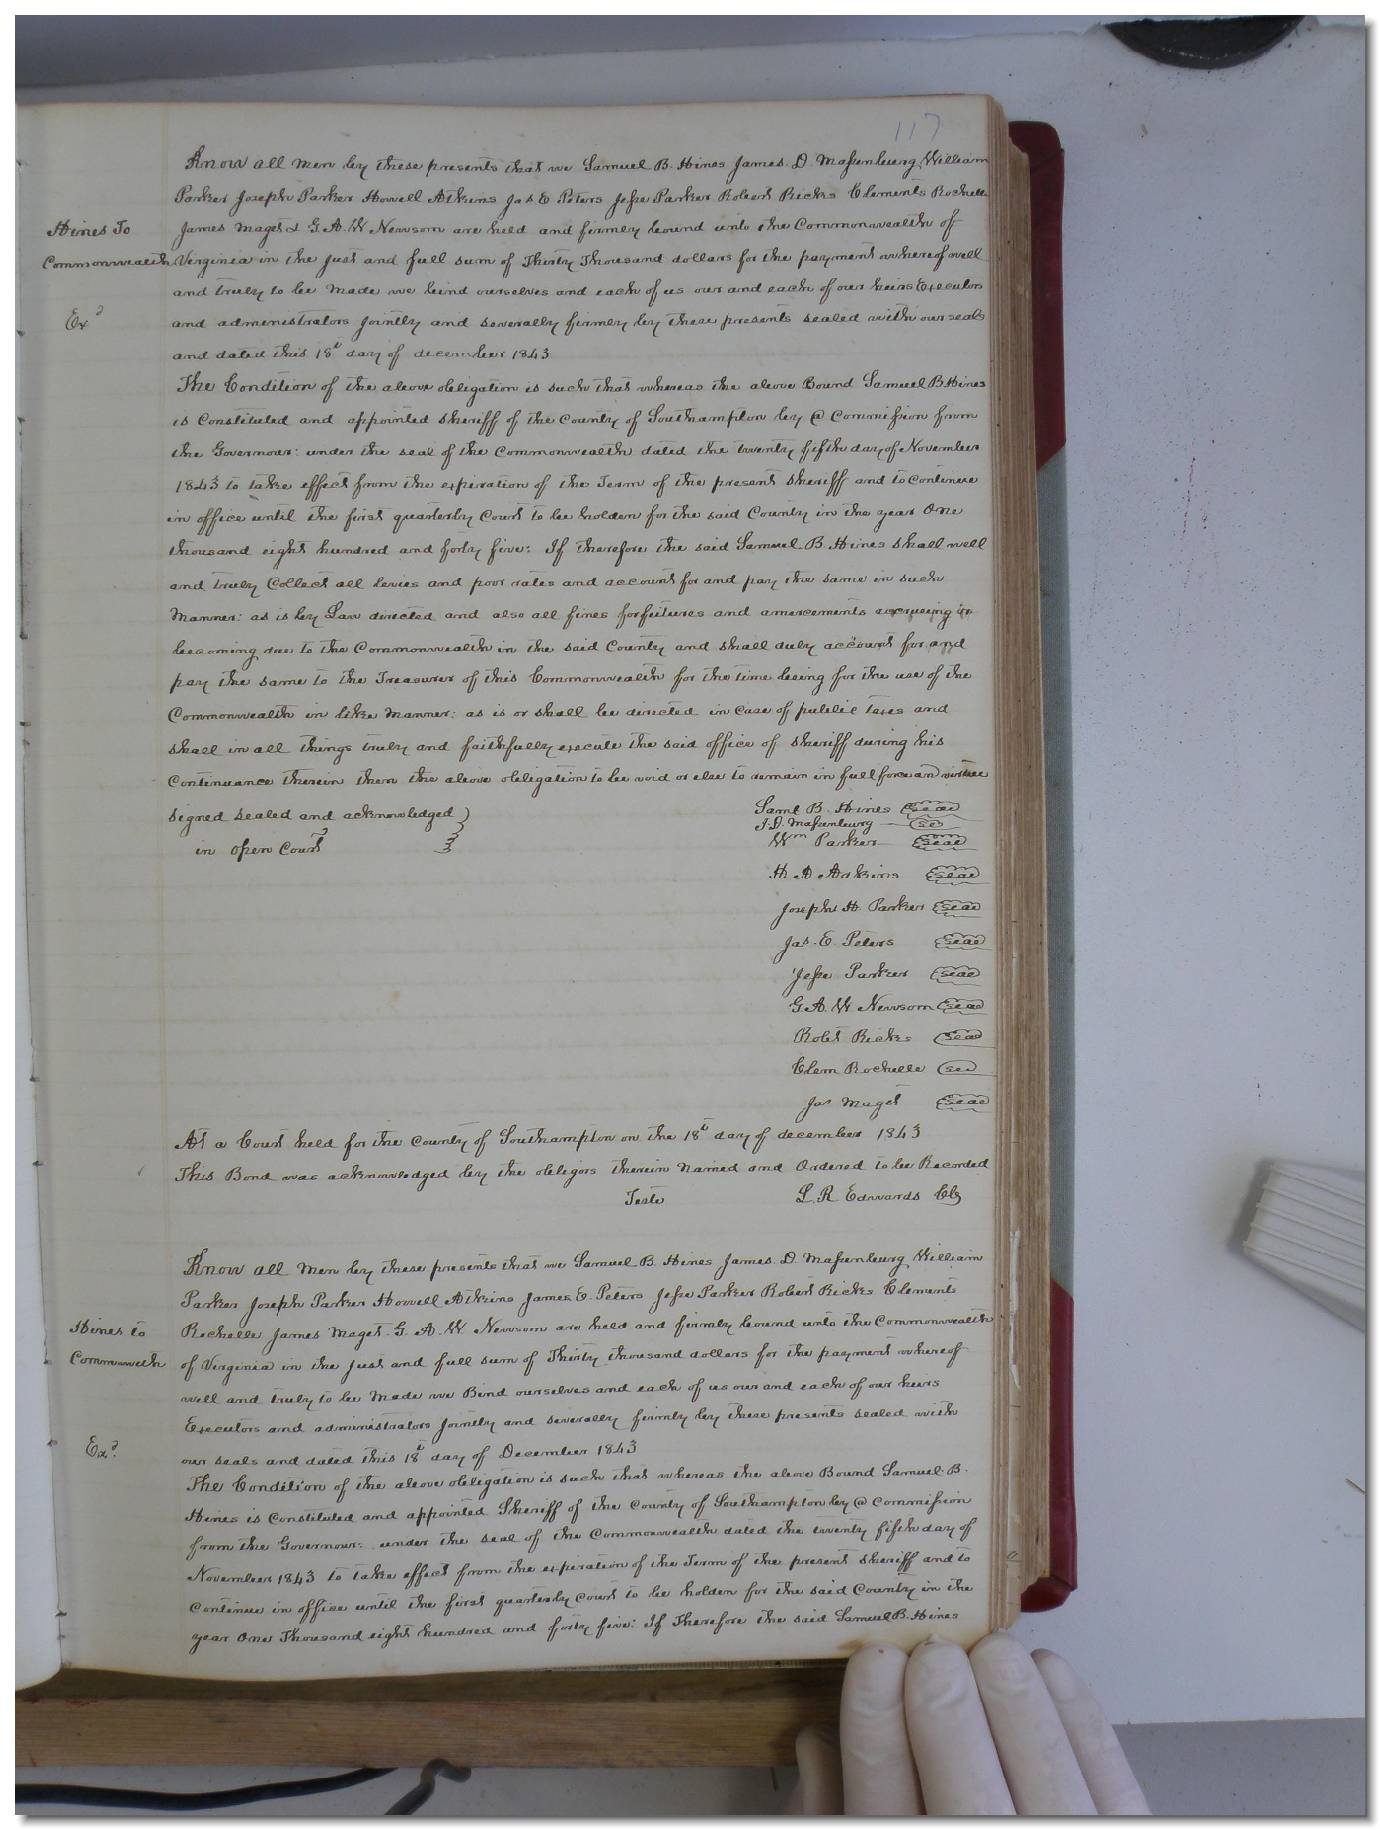 117
Know all men by these presents that we Samuel B. Hines James. D. Massenburg William
Parker Joseph Parker Howell Atkins Jas E Peters Jesse Parker Robert Ricks Clements Rochelle
Hines To
James Maget & G. A. W Newsom are held and firmly bound unto the Commonwealth of
Commonwealth
Virginia in the just and full sum of Thirty Thousand dollars for the payment whereof well
and truly to be Made we bind ourselves and each of us our and each of our heirs Executors
Exd
and administrators jointly and severally firmly by these presents sealed with our seals
and dated this 18t day of december 1843
The Condition of the above obligation is such that whereas the above Bound Samuel B. Hines
is Constituted and appointed sheriff of the County of Southampton by @ Commission from
the Governour: under the seal of the Commonwealth dated the twenty fifth day of November
1843 to take effect from the expiration of the Term of the present sheriff and to continue
in office until the first quarterly Court to be holden for the said County in the year One
thousand eight hundred and forty five: If therefore the said Samuel B. Hines shall well
and truly Collect all levies and poor rates and account for and pay the same in such
Manner: as is by Law directed and also all fines forfeitures and amercements accrueing or
becoming due to the Commonwealth in the said County and shall duly account for and
pay the same to the Treasurer of this Commonwealth for the time being for the use of the
Commonwealth in like Manner: as is or shall be directed in Case of public taxes and
shall in all things truly and faithfully execute the said office of sheriff during his
Continuance therein then the above obligation to be void or else to remain in full force and virtue
signed sealed and acknowledged
in open Court
Saml B. Hines seal
J. D. Massenburg
Wm Parker seal
H A Adkins seal
Joseph H. Parker seal
Jas. E Peters seal
Jesse Parker seal
G A. W Newsom seal
Robt Ricks seal
Clem Rochelle
Jas Maget seal
At a Court held for the County of Southampton on the 18t day of december 1843
This Bond was acknowledged by the obligors therein Named and Ordered to be Recorded
Teste L. R Edwards Clk
Know all men by these presents that we Samuel B. Hines James. D. Massenburg William
Parker Joseph Parker Howell Atkins James E. Peters Jesse Parker Robert Ricks Clements
Hines to
Rochelle James Maget. G. A. W Newsom are held and firmly bound unto the Commonwealth
Commonwealth
of Virginia in the just and full sum of Thirty thousand dollars for the payment whereof
well and truly to be Made we Bind ourselves and each of us our and each of our heirs
Executors and administrators jointly and severally firmly by these presents sealed with
Exd.
our seals and dated this 18t day of December 1843
The Condition of the above obligation is such that whereas the above Bound Samuel B.
Hines is Constituted and appointed Sheriff of the County of Southampton by @ Commission
from the Governour: under the seal of the Commonwealth dated the twenty fifth day of
November 1843 to take effect from the expiration of the Term of the present sheriff and to
Continue in office until the first quarterly Court to be holden for the said County in the
year One Thousand eight hundred and forty five: If Therefore the said Samuel B. Hines